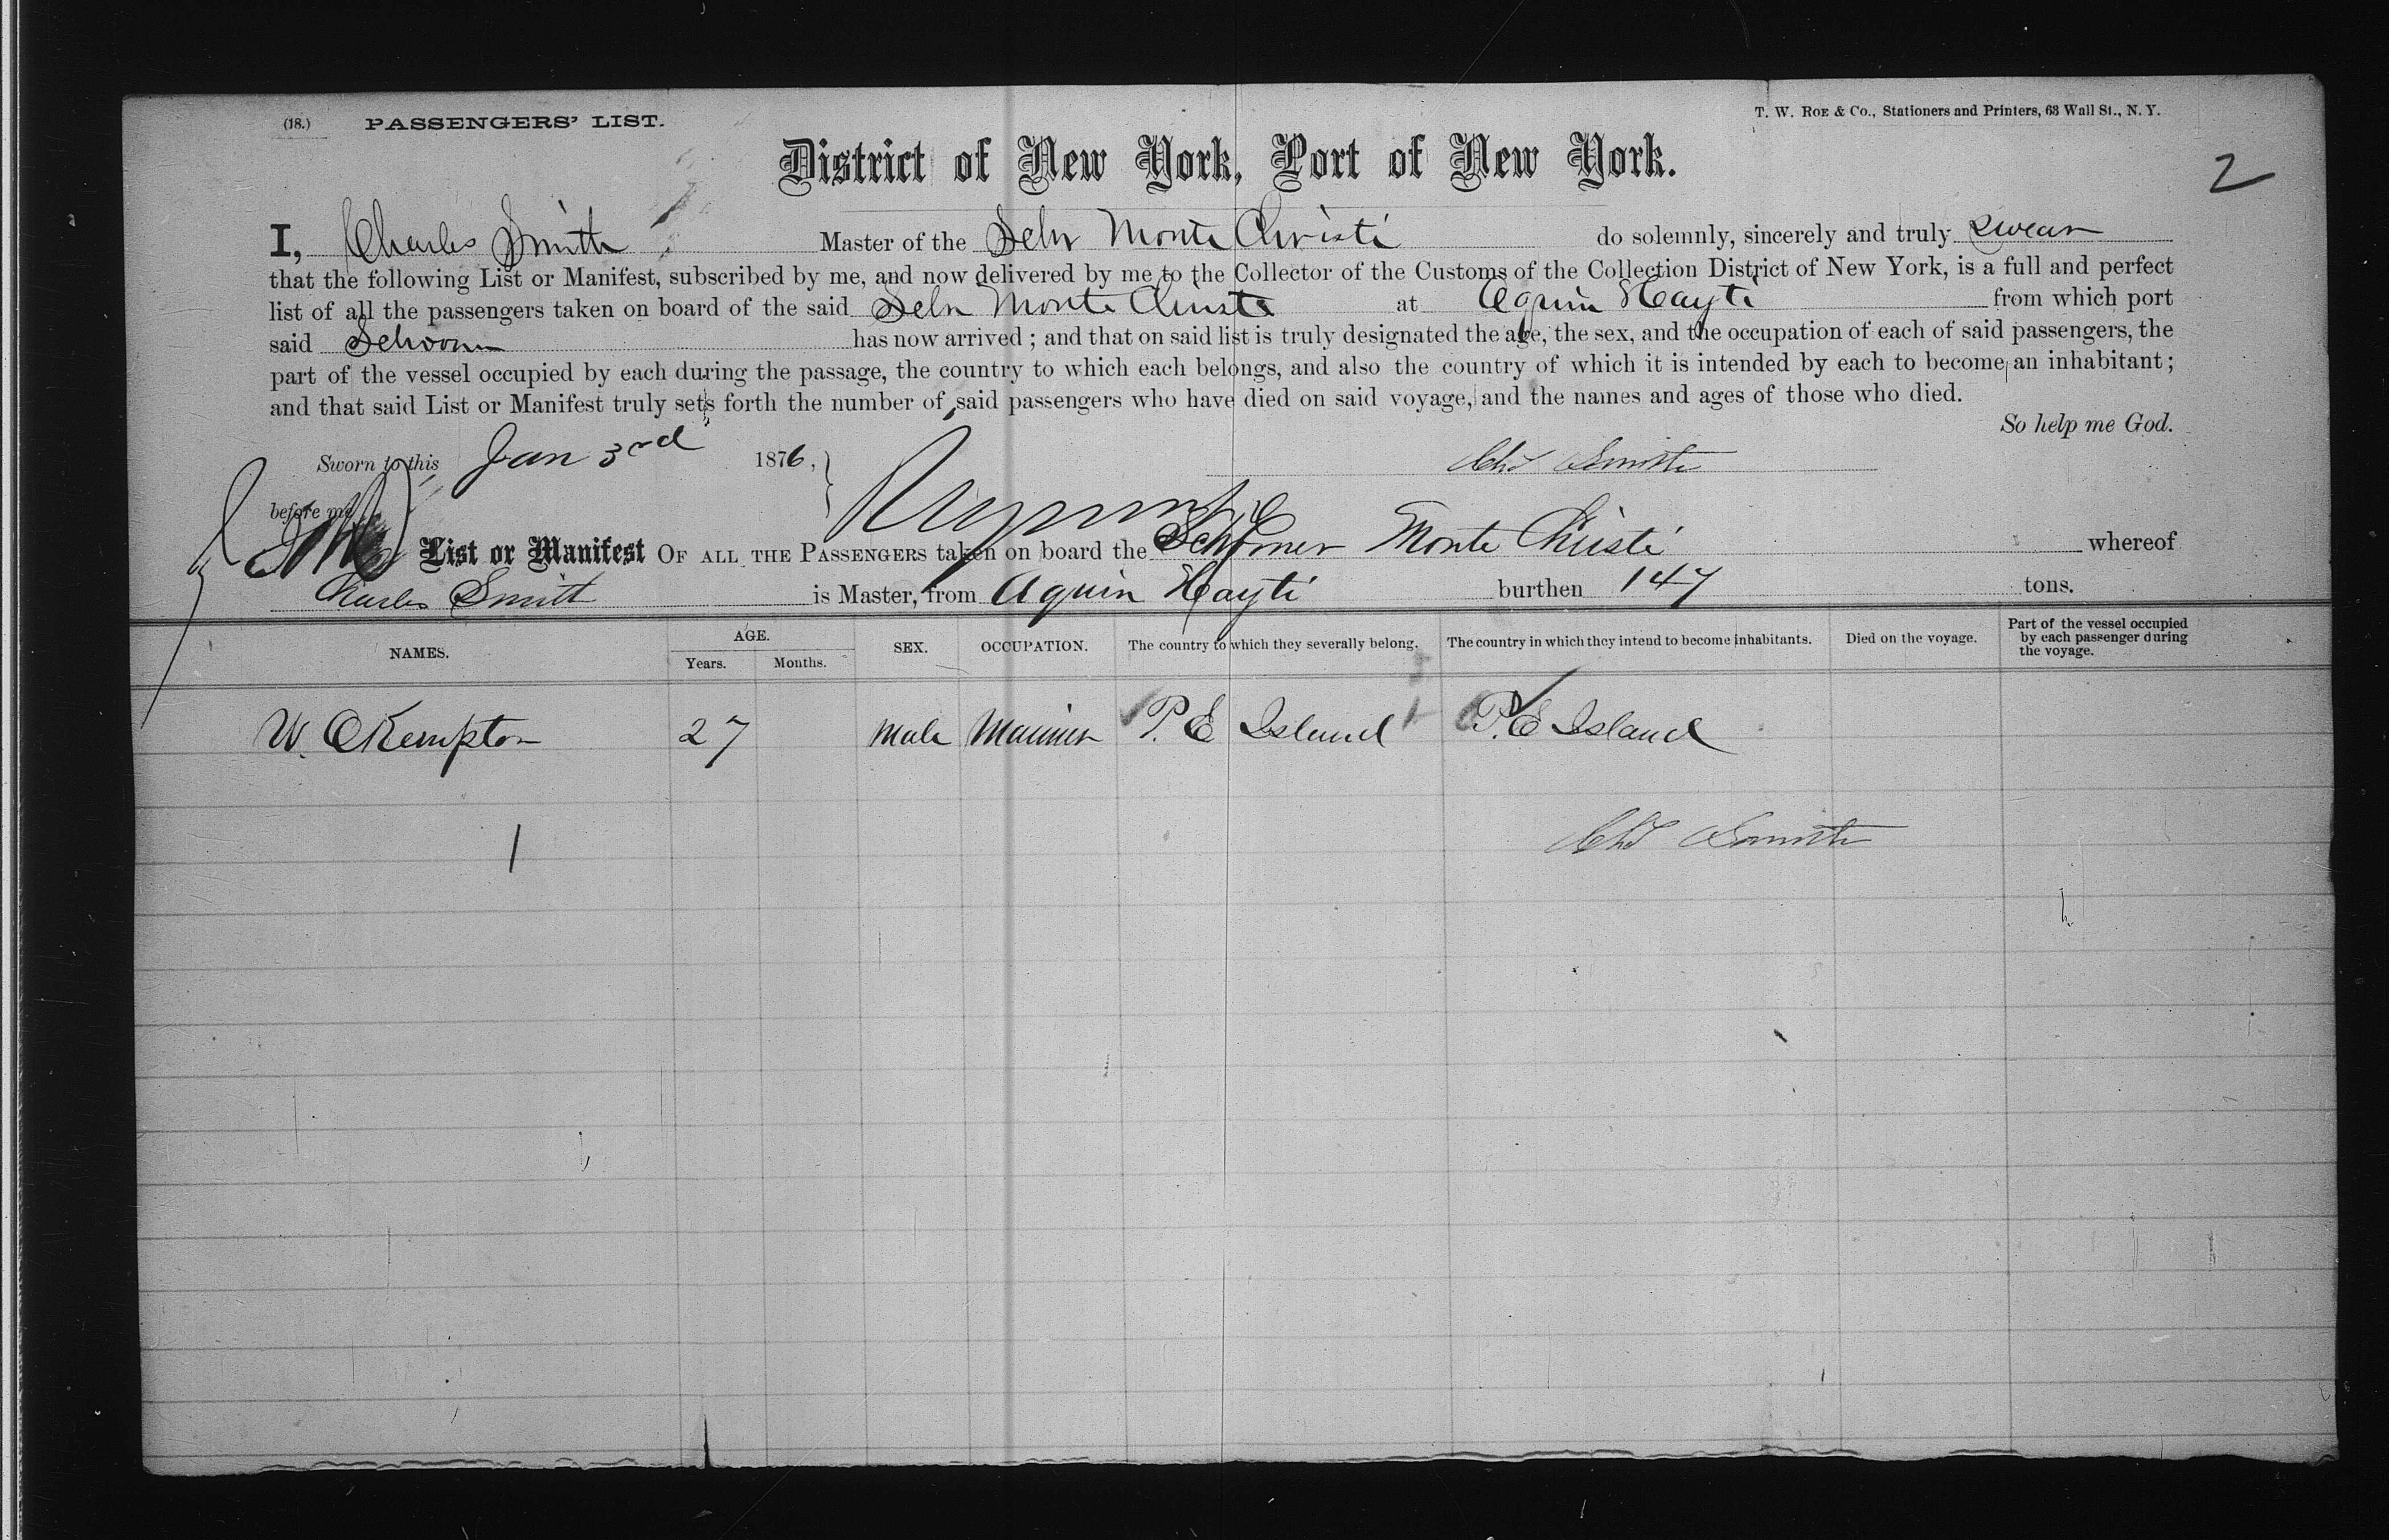 (18.) PASSENGERS' LIST.
T. W. ROE & CO., Stationers and Printers, 63 Wall St., N. Y.
District of New York, Port of New York.
2
I, Charles Smith Master of the Schr Monte Christi do solemnly, sincerely and truly swear
that the following List or Manifest, subscribed by me, and now delivered by me to the Collector of the Customs of the Collection District of New York, is a full and perfect
list of all the passengers taken on board of the said Schr Monte Christi at Aquin Hayti from which port
said Schooner has now arrived ; and that on said list is truly designated the age, the sex, and the occupation of each of said passengers, the
part of the vessel occupied by each during the passage, the country to which each belongs, and also the country of which it is intended by each to become an inhabitant ;
and that said List or Manifest truly sets forth the number of said passengers who have died on said voyage, and the names and ages of those who died.
So help me God.
Sworn to this Jan 3rd 1876,
Chs Smith
before me
List or Manifest OF ALL THE PASSENGERS taken on board the Schooner Monte Christi whereof
Charles Smith is Master, from Aquin Hayti burthen 147 tons.
NAMES. AGE. Years. Months. SEX. OCCUPATION. The country to which they severally belong. The country in which they intend to become inhabitants. Died on the voyage. Part of the vessel occupied by each passenger during the voyage.
W. C Kempton 27 Male Mariner P. E Island P. E Island
1
Chs Smith